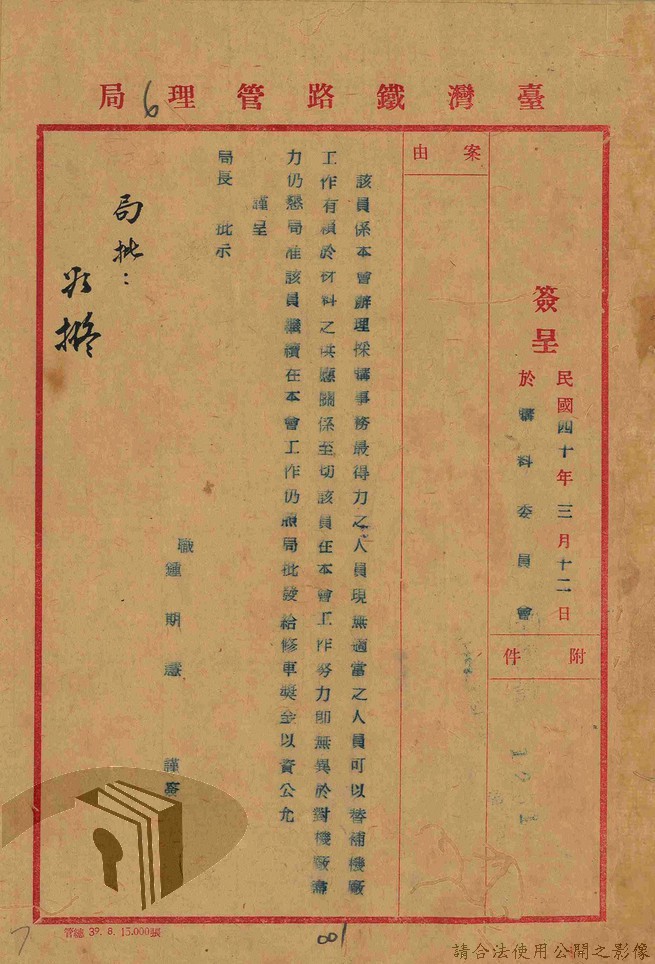 臺灣鐵路管理局
6
簽呈
民國四十年三月十二日
於 購料委員會
附件
案由
該員係本會辦理採購事務最得力之人員現無適當之人員可以替補機廠
工作有賴於材料之供應關係至切該員在本會工作努力即無異於對機廠
力仍懇局准該員繼續在本會工作仍照局批發給修車獎金以資公允
謹呈
局長 批示
職 鍾期 謹簽
局批：
擬
管總 39. 8. 15.000張
001
7
請合法使用公開之影像